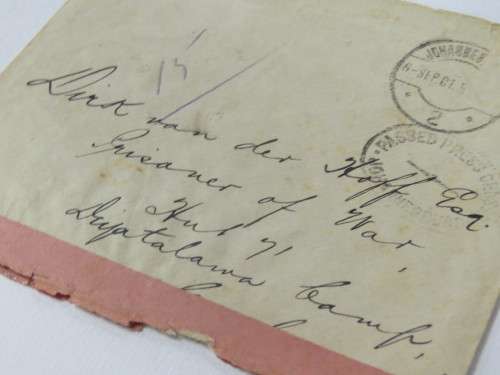 JOHANNES
6-SEP.01.5
2
PASSED PRESS
Dirk van der Hoff Esq.
Prisoner of War,
Hut 71
Diyatalawa Camp,